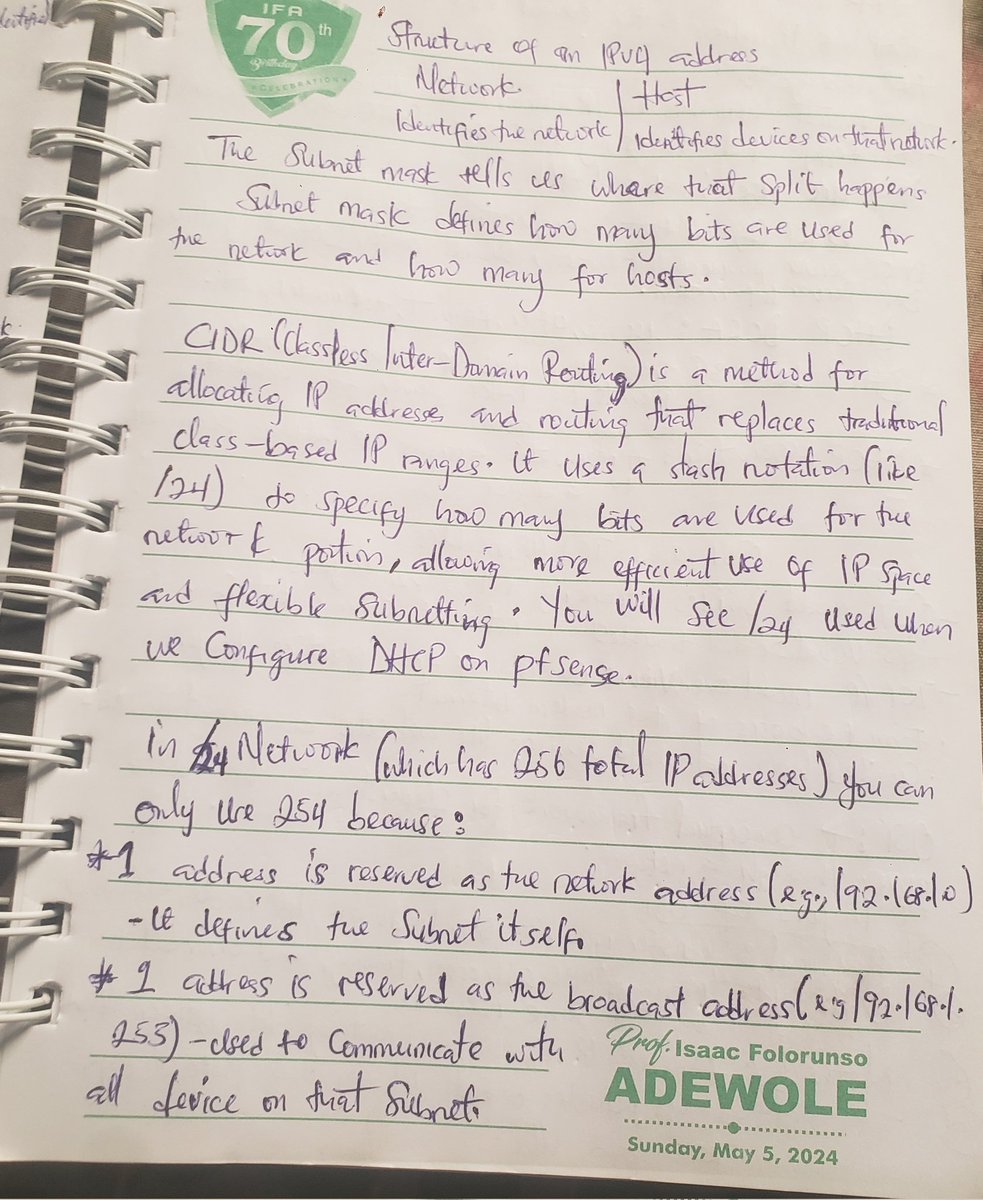 IFA
70th
Birthday
CELEBRATION
Structure of an IPV4 address
Network | Host
Identifies the network | Identifies devices on that network.
The Subnet mask tells us where that Split happens
Subnet mask defines how many bits are used for
the network and how many for hosts.
CIDR (Classless Inter-Domain Routing) is a method for
allocating IP addresses and routing that replaces traditional
class-based IP ranges. It uses a slash notation (like
/24) to specify how many bits are used for the
network portion, allowing more efficient use of IP space
and flexible Subnetting. You will see /24 used when
we Configure DHCP on pfsense.
In /24 Network (which has 256 total IP addresses) you can
only use 254 because:
*1 address is reserved as the network address (e.g., 192.168.1.0)
- It defines the Subnet itself.
* 1 address is reserved as the broadcast address (e.g 192.168.1.
255) - Used to Communicate with
all device on that Subnet.
Prof. Isaac Folorunso
ADEWOLE
Sunday, May 5, 2024
k.